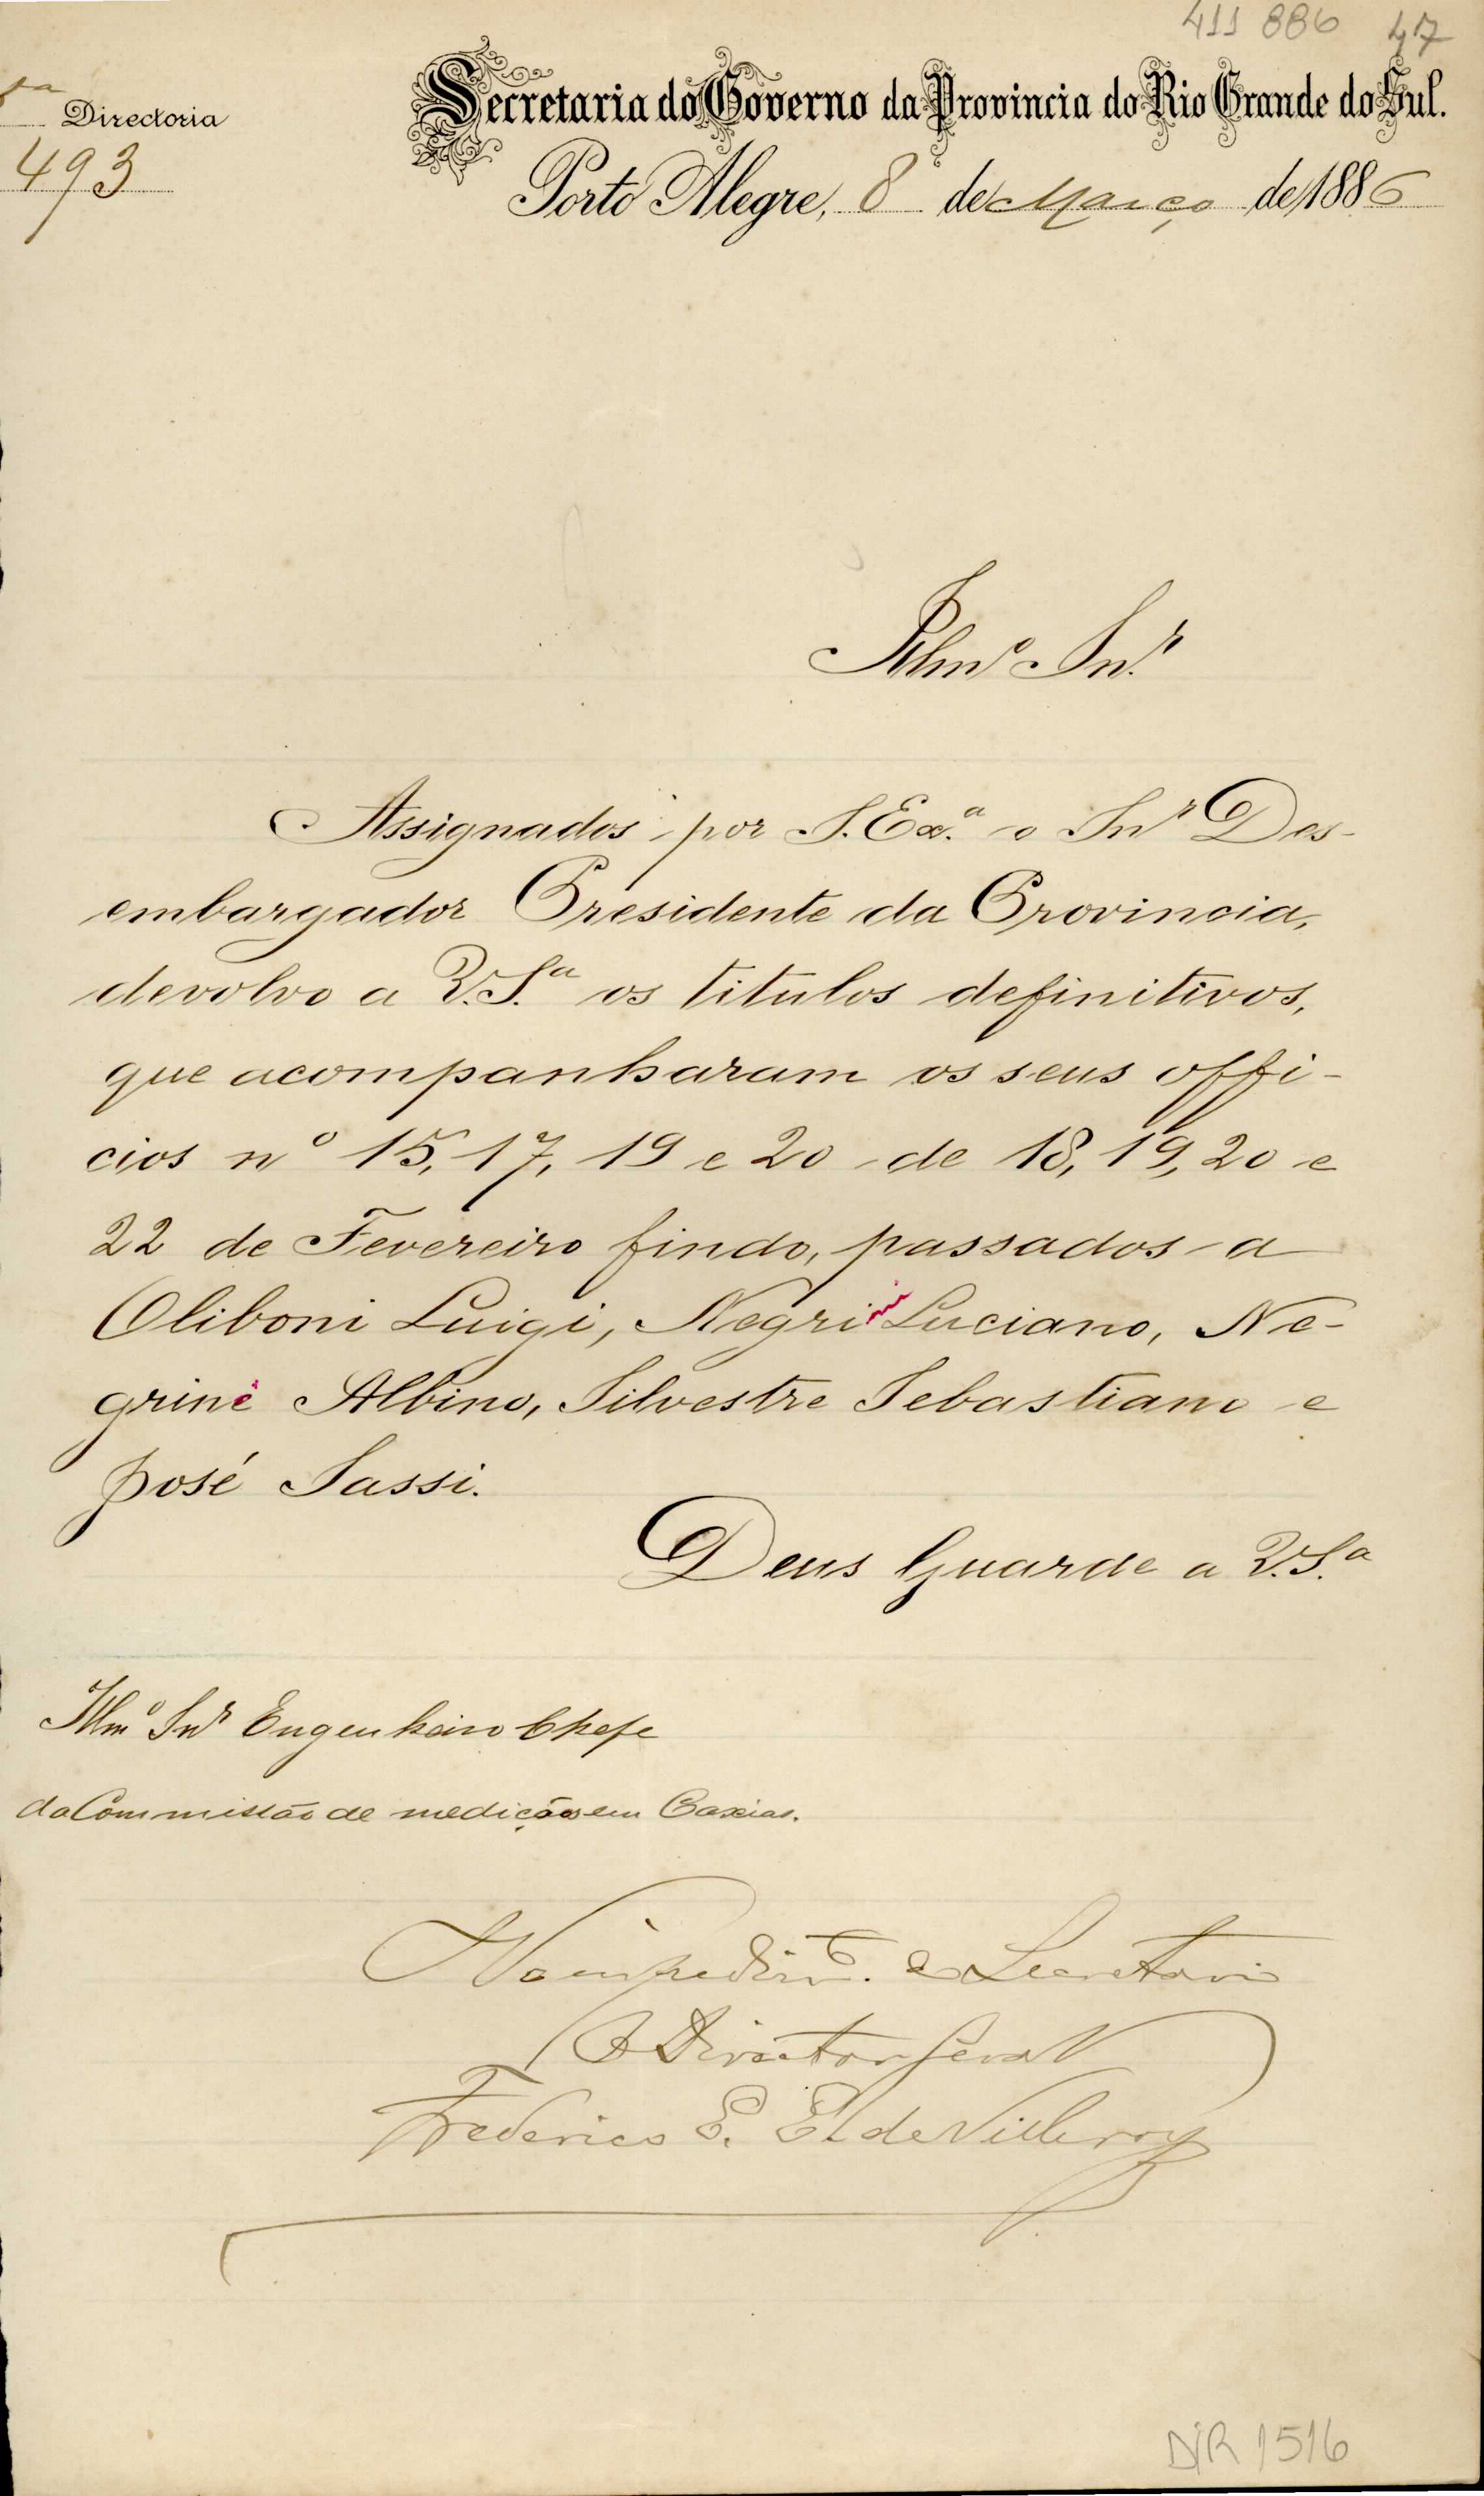 411 886 47
Directoria
Secretaria do Governo da Provincia do Rio Grande do Sul.
493
Porto Alegre, 8 de Março de 1886
Illmº Snr.
Assignados por S. Exª. o Snr Des-
embargador Presidente da Provincia,
devolvo a V.S.ª os titulos definitivos,
que acompanharam os seus offi-
cios nº 15, 17, 19 e 20 de 18, 19, 20 e
22 de Fevereiro findo, passados a
Oliboni Luigi, Negrini Luciano, Ne-
grini Albino, Silvestre Sebastiano e
José Sassi.
Deus Guarde a V.S.ª
Illmº Snr Engenheiro Chefe
da Commissão de medição em Caxias.
No impedimtº. do Secretario
O Director Geral
Frederico E. E. de Villeroy
DIR 1516